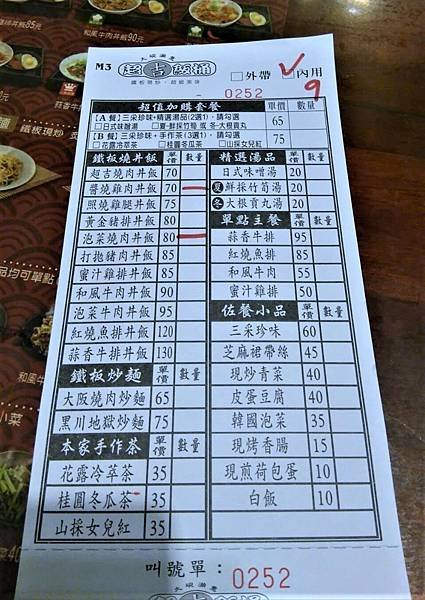 M3
超吉飯桶
鐵板現炒，超級美味
□外帶 □內用
0252
9
超值加購套餐 單價 數量
【A餐】三采珍味+精選湯品(2選1)，請勾選
□日式味噌湯 □夏-鮮採竹筍 或 冬-大根貢丸
65
【B餐】三采珍味+手作茶(3選1)，請勾選
□花露冷萃茶 □桂圓冬瓜茶 □山採女兒紅
75
鐵板燒丼飯 單價 數量
超吉燒肉丼飯 70
醬燒雞肉丼飯 80
照燒雞腿丼飯 75
黃金豬排丼飯 80
泡菜燒肉丼飯 80
打拋豬肉丼飯 85
蜜汁雞排丼飯 85
和風牛肉丼飯 90
泡菜牛肉丼飯 95
紅燒魚排丼飯 120
蒜香牛排丼飯 130
鐵板炒麵 單價 數量
大阪燒肉炒麵 65
黑川地獄炒麵 75
本家手作茶 單價 數量
花露冷萃茶 35
桂圓冬瓜茶 35
山採女兒紅 35
精選湯品 單價 數量
日式味噌湯 20
夏 鮮採竹筍湯 20
冬 大根貢丸湯 20
單點主餐 單價 數量
蒜香牛排 95
紅燒魚排 85
和風牛肉 55
蜜汁雞排 50
佐餐小品 單價 數量
三采珍味 60
芝麻裙帶絲 45
現炒青菜 40
皮蛋豆腐 40
韓國泡菜 35
現烤香腸 15
現煎荷包蛋 10
白飯 10
叫號單：0252
丼飯85元
和風牛肉丼飯 90元
蒜香牛
鐵板現炒
品均可單點
和風牛
小菜